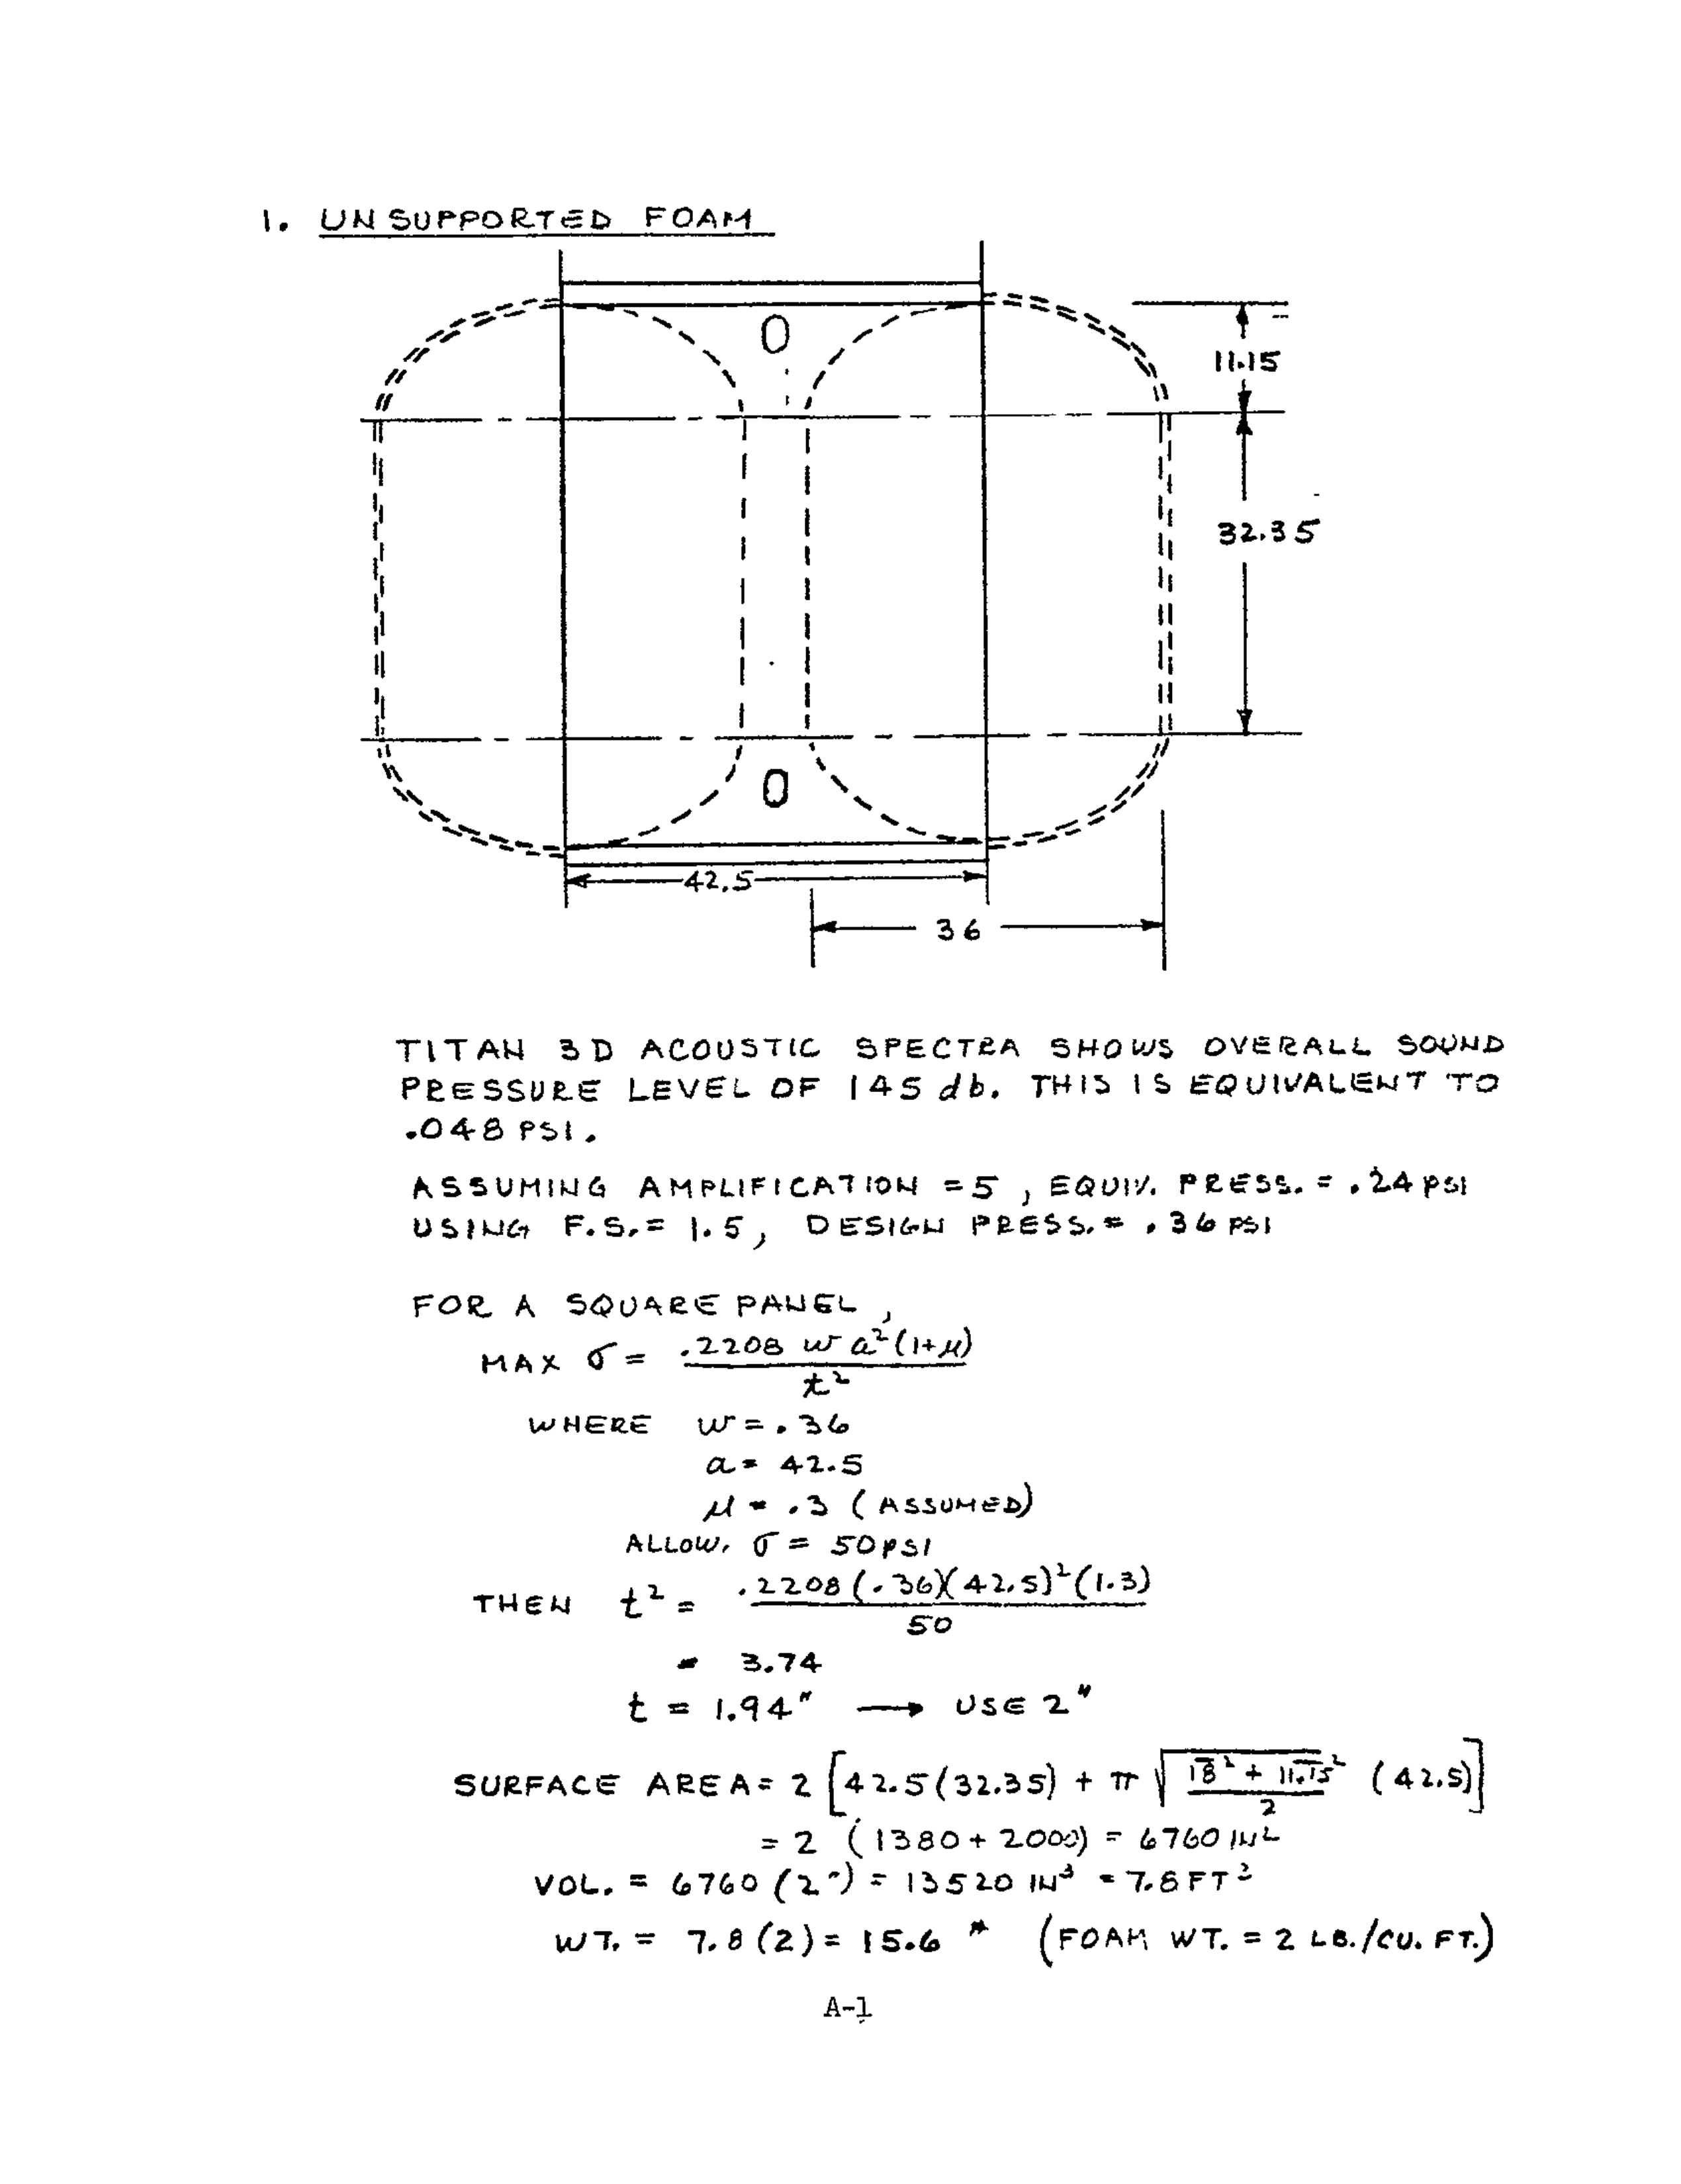 1. UNSUPPORTED FOAM
0
11.15
32.35
0
42.5
36
TITAN 3D ACOUSTIC SPECTRA SHOWS OVERALL SOUND
PRESSURE LEVEL OF 145 db. THIS IS EQUIVALENT TO
.048 PSI.
ASSUMING AMPLIFICATION = 5, EQUIV. PRESS. = .24 PSI
USING F.S. = 1.5, DESIGN PRESS. = .36 PSI
FOR A SQUARE PANEL,
MAX σ = .2208 w a²(1+μ) / t²
WHERE w = .36
a = 42.5
μ = .3 (ASSUMED)
ALLOW. σ = 50 PSI
THEN t² = .2208(.36)(42.5)²(1.3) / 50
= 3.74
t = 1.94" → USE 2"
SURFACE AREA = 2 [42.5(32.35) + π √(18² + 11.15² / 2) (42.5)]
= 2 (1380 + 2000) = 6760 IN²
VOL. = 6760 (2") = 13520 IN³ = 7.8 FT³
WT. = 7.8 (2) = 15.6 # (FOAM WT. = 2 LB./CU. FT.)
A-1